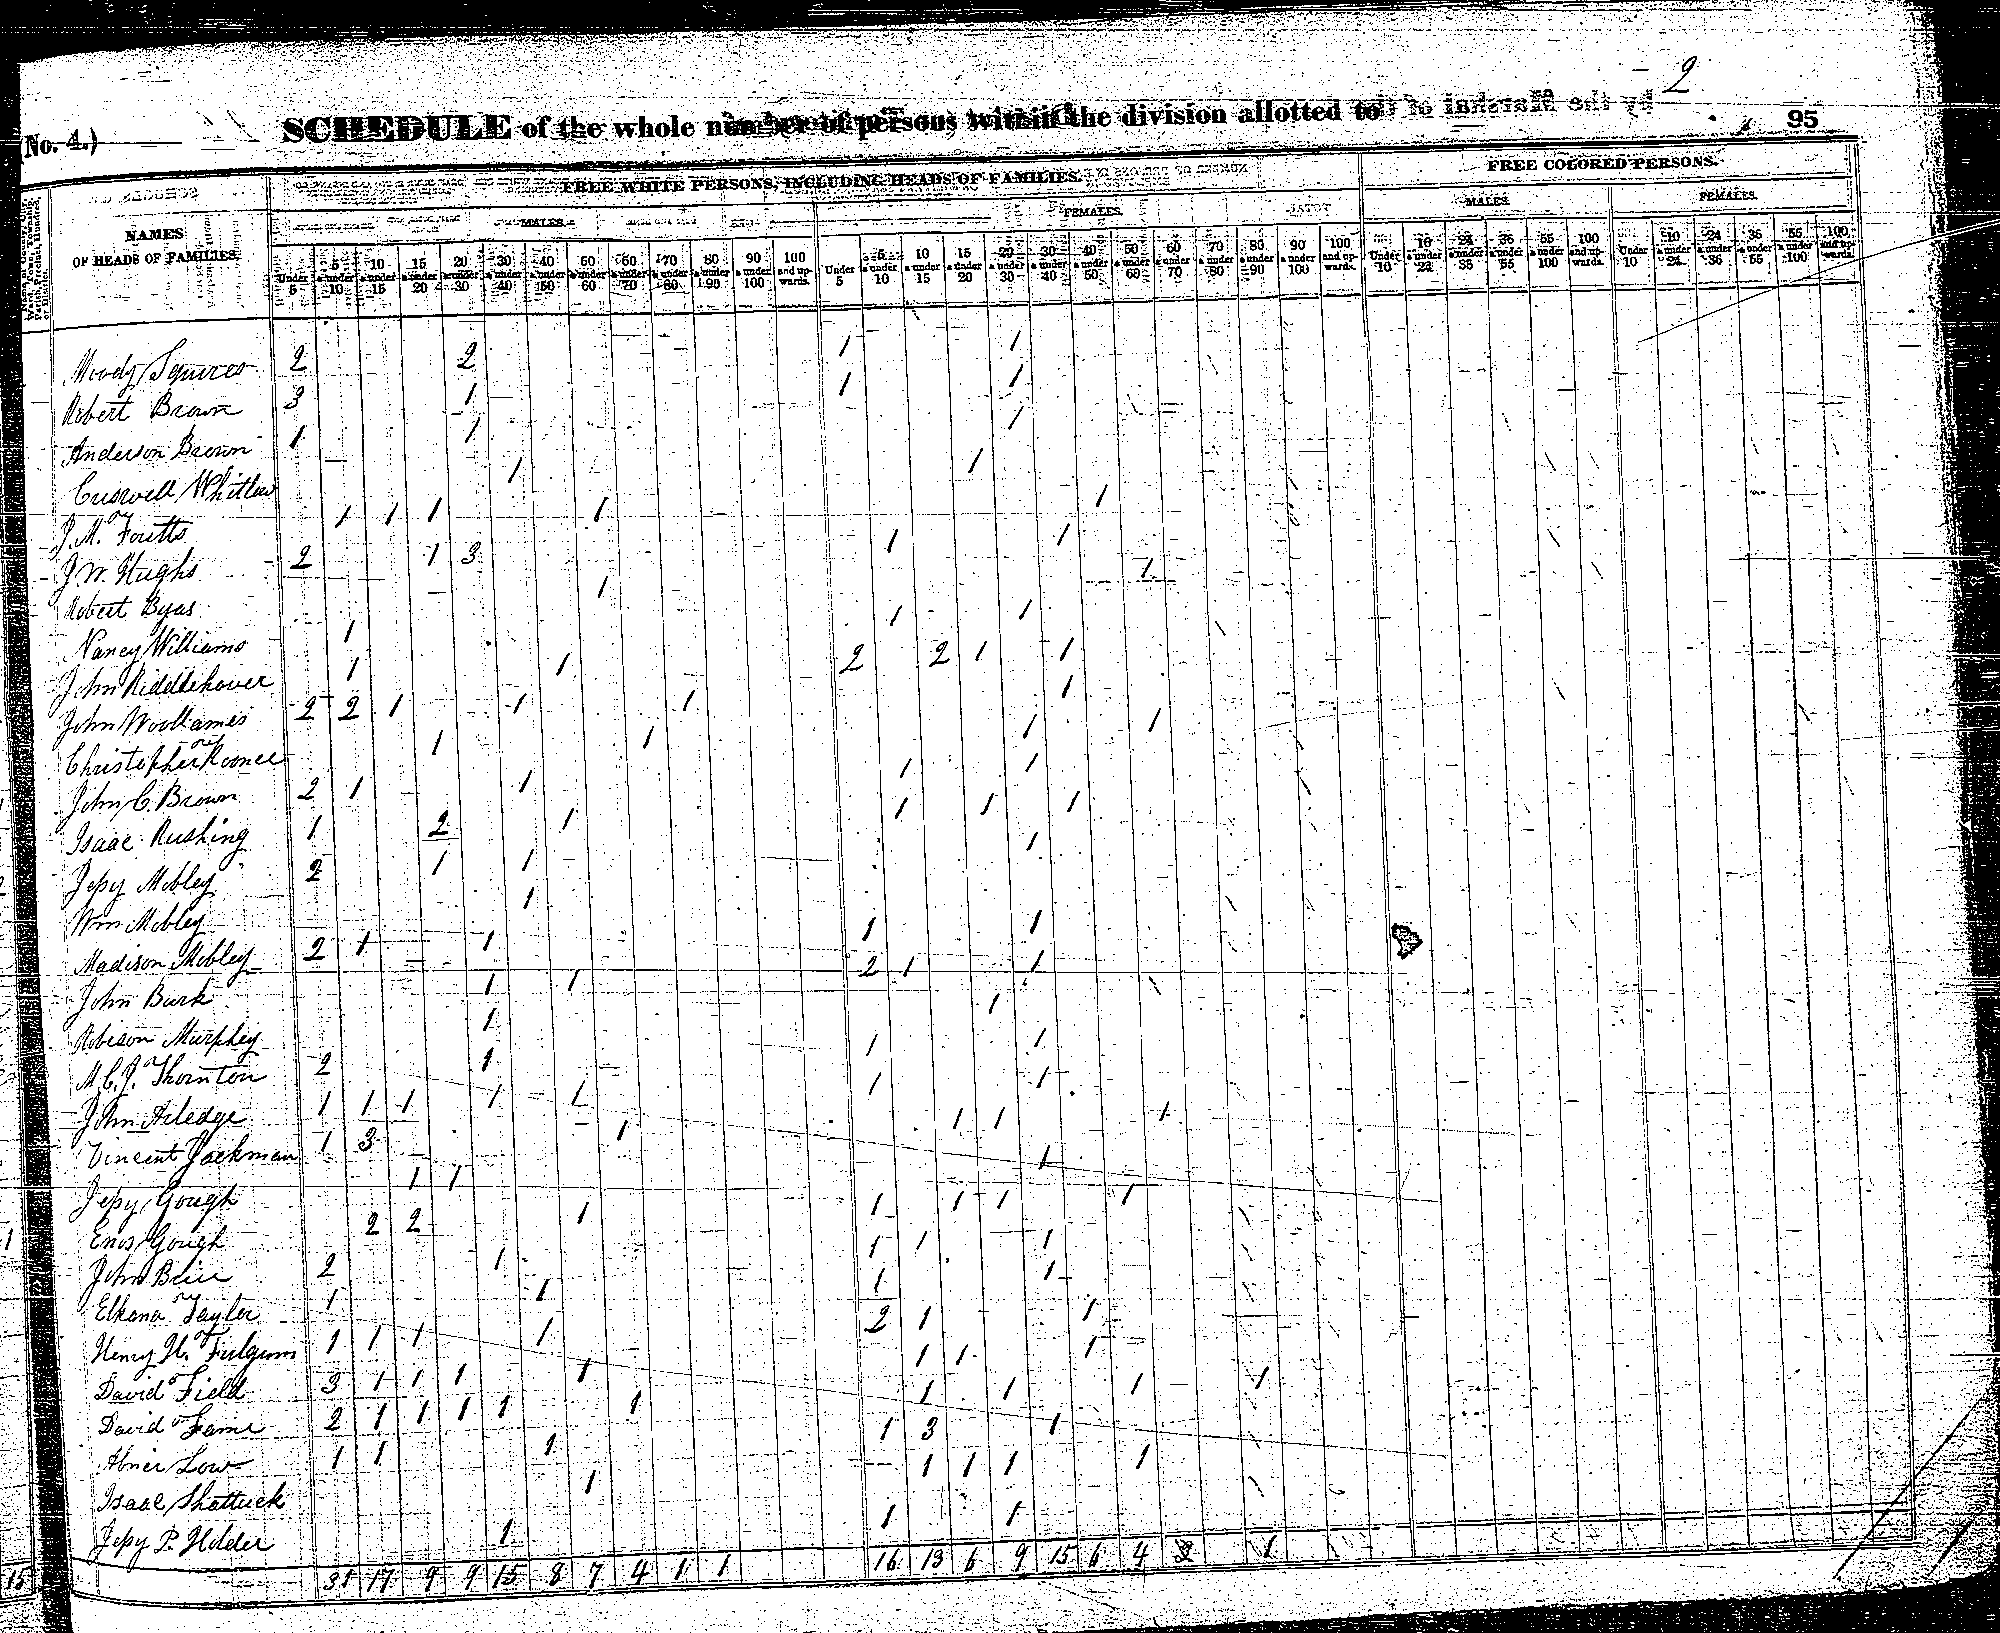 2
(No. 4.) SCHEDULE of the whole number of persons within the division allotted to 95
FREE WHITE PERSONS, INCLUDING HEADS OF FAMILIES. FREE COLORED PERSONS.
MALES FEMALES. MALES FEMALES.
NAMES
OF HEADS OF FAMILIES.
Under 5 5 & under 10 10 & under 15 15 & under 20 20 & under 30 30 & under 40 40 & under 50 50 & under 60 60 & under 70 70 & under 80 80 & under 90 90 & under 100 100 and upwards. Under 5 5 & under 10 10 & under 15 15 & under 20 20 & under 30 30 & under 40 40 & under 50 50 & under 60 60 & under 70 70 & under 80 80 & under 90 90 & under 100 100 and upwards. Under 10 10 & under 24 24 & under 36 36 & under 55 55 & under 100 100 and upwards. Under 10 10 & under 24 24 & under 36 36 & under 55 55 & under 100 100 and upwards.
Moody Squires 2 2 1 1
Robert Brown 3 1 1 1
Anderson Brown 1 1 1
Whitlow 1 1
J. M. Foutts 1 1 1 1 1
J W. Hughs 2 1 3 1 1
Robert Byas 1 1
Nancy Williams 1 1 1
John Riddlehover 1 1 2 2 1 1
John Woollames 2 2 1 1 1 1
Christopher 1 1 1 1
John C. Brown 2 1 1 1 1
Isaac Rushing 1 2 1 1 1 1
Jessy Mobley 2 1 1 1
Wm Mobley 1
Madison Mobley 2 1 1 1 1
John Burk 1 1 2 1 1
Robeson Murphey 1 1
M. C. J. Thornton 2 1 1 1
John Arledge 1 1 1 1 1 1 1
Vincent Jackman 1 3 1 1 1 1
Jessy Gough 1 1 1
Enos Gough 2 2 1 1 1 1 1
John Brie 2 1 1 1 1
Elkana Taylor 1 1 1 1
Henry H. Fulgum 1 1 1 1 2 1 1
David Field 3 1 1 1 1 1 1 1
David Fame 2 1 1 1 1 1 1 1 1 1
Abner Low 1 1 1 1 3 1
Isaac Shattuck 1 1 1 1 1
Jessy P. Holder 1 1 1
15 31 17 9 9 15 8 7 4 1 1 16 13 6 9 15 6 4 2 1